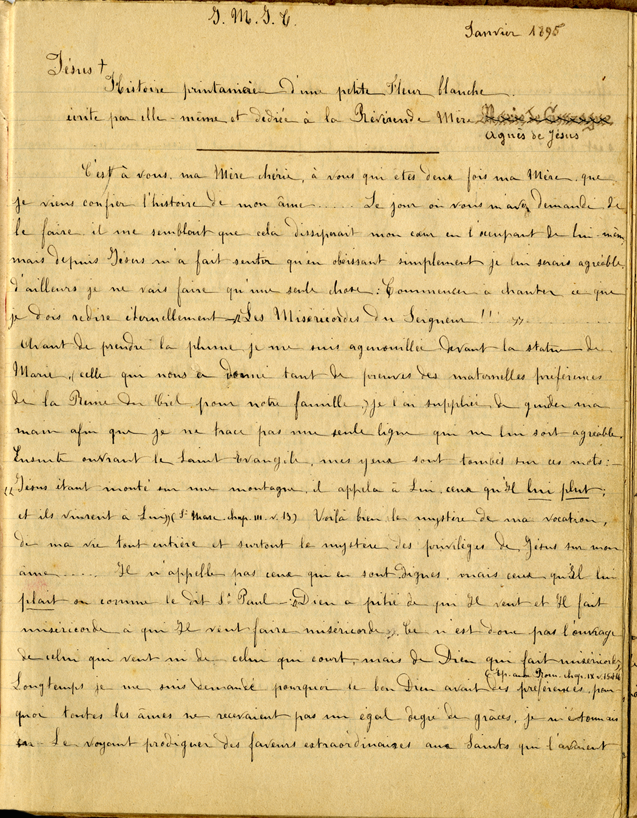 J. M. J. T.
Janvier 1895
Jésus †
Histoire printanière d'une petite Fleur blanche
écrite par elle-même et dédiée à la Révérende Mère
Agnès de Jésus
C'est à vous, ma Mère chérie, à vous qui êtes deux fois ma Mère, que
je viens confier l'histoire de mon âme ..... Le jour où vous m'avez demandé de
le faire, il me semblait que cela dissiperait mon cœur en l'occupant de lui-même,
mais depuis Jésus m'a fait sentir qu'en obéissant simplement je lui serais agréable,
d'ailleurs je ne vais faire qu'une seule chose : Commencer à chanter ce que
je dois redire éternellement « Les Miséricordes du Seigneur !! » ..........
Avant de prendre la plume je me suis agenouillée devant la statue de
Marie, (celle qui nous a donné tant de preuves des maternelles préférences
de la Reine du Ciel pour notre famille,) je l'ai suppliée de guider ma
main afin que je ne trace pas une seule ligne qui ne lui soit agréable.
Ensuite ouvrant le Saint Evangile, mes yeux sont tombés sur ces mots : -
« Jésus étant monté sur une montagne, il appela à Lui ceux qu'Il lui plut;
et ils vinrent à Lui » (St Marc chap. III. v. 13) Voilà bien le mystère de ma vocation,
de ma vie tout entière et surtout le mystère des privilèges de Jésus sur mon
âme ...... Il n'appelle pas ceux qui en sont dignes, mais ceux qu'Il lui
plaît ou comme le dit St Paul - « Dieu a pitié de qui Il veut et Il fait
miséricorde à qui Il veut faire miséricorde. Ce n'est donc pas l'ouvrage
de celui qui veut ni de celui qui court, mais de Dieu qui fait miséricorde »
(Ep. aux Rom. chap. IX v. 15 et 16)
Longtemps je me suis demandé pourquoi le bon Dieu avait des préférences, pour-
quoi toutes les âmes ne recevaient pas un égal degré de grâces, je m'étonnais
en Le voyant prodiguer des faveurs extraordinaires aux Saints qui l'avaient